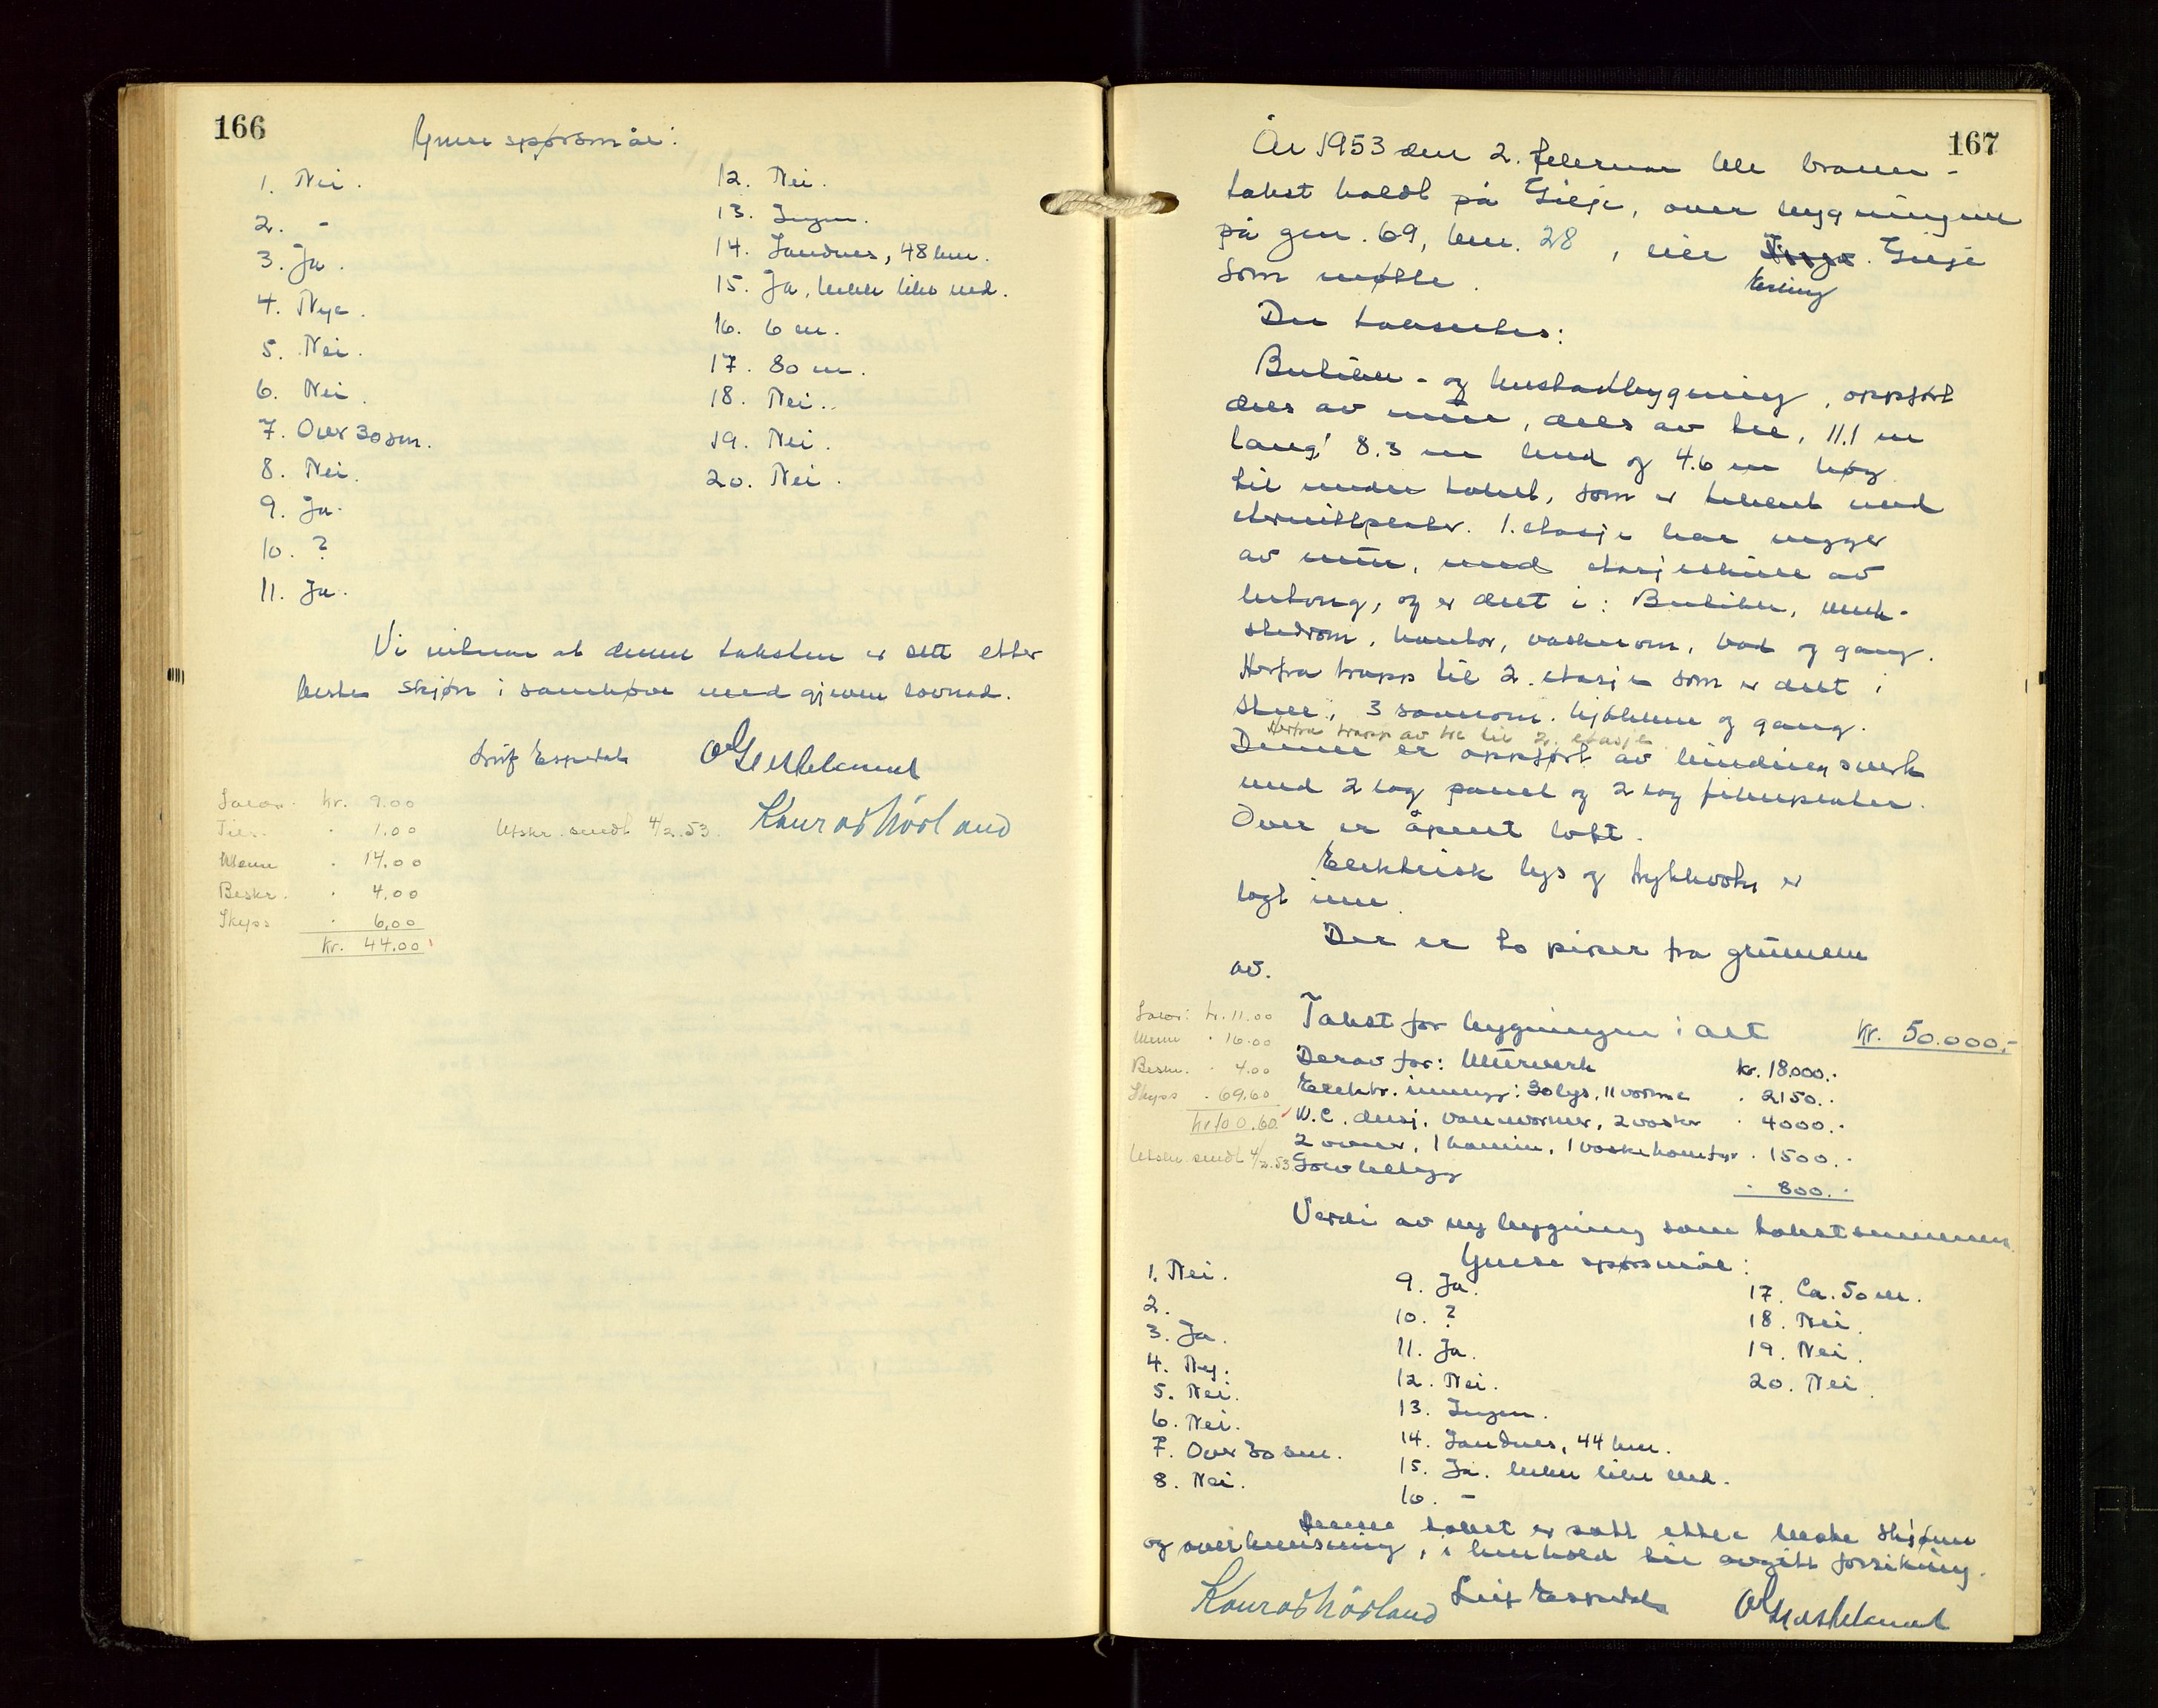 166
Ymse spørsmål:
1. Nei.
2. -
3. Ja.
4. Nye.
5. Nei.
6. Nei.
7. Over 30 sm.
8. Nei.
9. Ja.
10. ?
11. Ja.
12. Nei.
13. Ingen.
14. Sandnes, 48 km.
15. Ja, bekk like ved.
16. 6 m.
17. 80 m.
18. Nei.
19. Nei.
20. Nei.
Vi vitnar at denne taksten er sett etter
beste skjøn i samhøve med gjeven lovnad.
Leif Espedal
Konrad Hörland
Utskr. sendt 4/2.53.
kr. 9.00
" 1.00
" 14.00
Beskr. " 4.00
Skyss " 6.00
kr. 44.00
167
År 1953 den 2. februar ble brann-
takst holdt på Gilje, over bygningen
på gnr. 69, bnr. 28, til Gilje
Erling
som møtte.
Der takseres:
Butikk- og husstadbygning, oppført
dels av mur, dels av tre, 11.1 m
lang, 8.3 m bred og 4.6 m høg
til under taket, som er tekket med
eternittplater. 1. etasje har vegger
av mur, med etasjeskille av
betong, og er delt i: Butikk, verk-
stedrom, kontor, vaskerom, bad og gang.
Herfra trapp til 2. etasje som er delt i
stue, 3 soverom, kjøkken og gang.
Herfra trapp av tre til 2. etasje
Denne er oppført av bindingsverk
med 2 lag panel og 2 lag fiberplater.
Over er åpent loft.
Elektrisk lys og trykkvatn er
lagt inn.
Der er to piper fra grunnen
av.
Takst for bygningen i alt kr. 50.000,-
Derav for: Murverk kr. 18000.-
Elektr. innlegg: 30 lys, 11 varme " 2150.-
W.C. dusj, vannvarmer, 2 vasker " 4000.-
2 ovner, 1 kamin, 1 vaskekomfyr " 1500.-
Golvbelegg " 800.-
kr. 11.00
" 16.00
Beskr. " 4.00
Skyss " 69.60
kr 100.60
Utskr sendt 4/2.53
Verdi av ny bygning som takstsummen.
Ymse spørsmål:
1. Nei.
2.
3. Ja.
4. Ny.
5. Nei.
6. Nei.
7. Over 30 sm.
8. Nei.
9. Ja.
10. ?
11. Ja.
12. Nei.
13. Ingen.
14. Sandnes, 44 km.
15. Ja. bekk like ved.
16. -
17. Ca. 50 m.
18. Nei.
19. Nei.
20. Nei.
Denne takst er satt etter beste skjønn
og overbevisning, i henhold til avgitt forsikring.
Konrad Hörland Leif Espedal